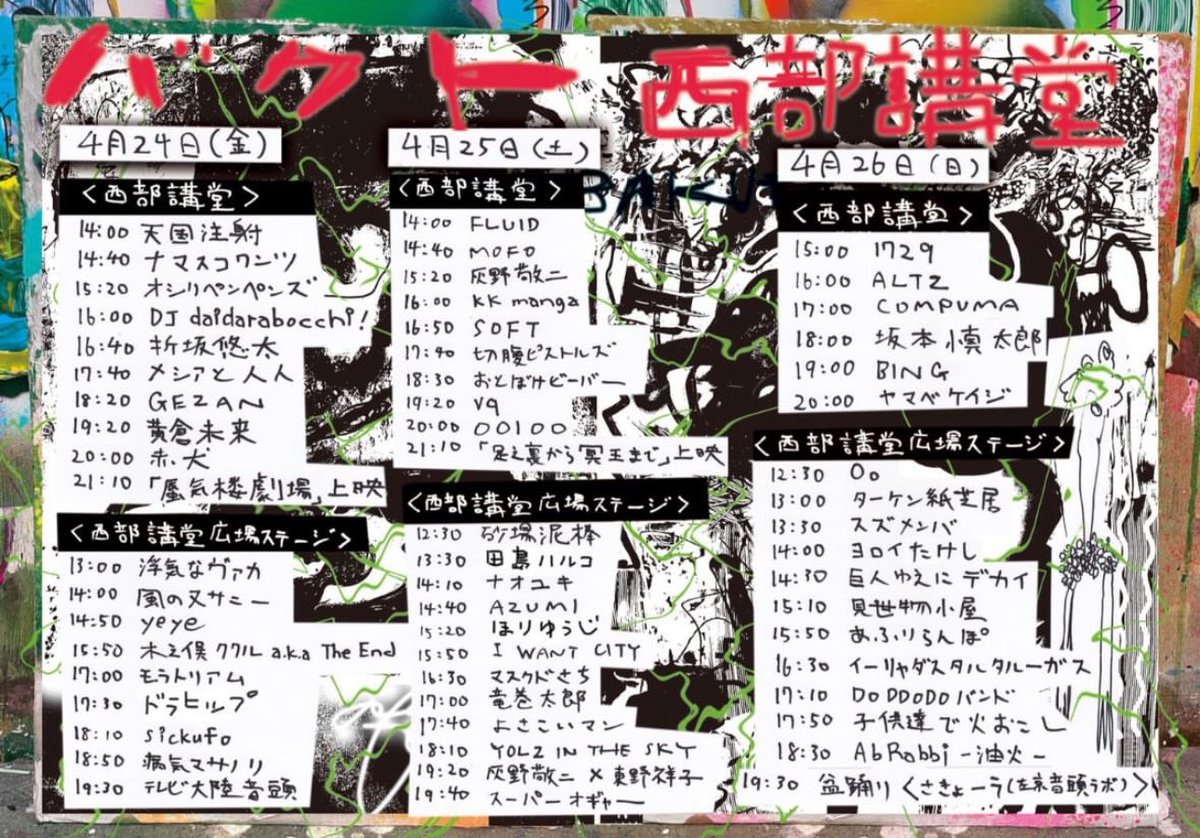 バクト 西部講堂
BAKU
4月24日(金)
<西部講堂>
14:00 天国注射
14:40 ナマスコワンツ
15:20 オシリペンペンズ
16:00 DJ daidarabocchi!
16:40 折坂悠太
17:40 メシアと人人
18:20 GEZAN
19:20 黄倉未来
20:00 赤い犬
21:10 「蜃気楼劇場」上映
<西部講堂広場ステージ>
13:00 浮気なヴァカ
14:00 風の又サニー
14:50 yeye
15:50 木之俣ククル a.k.a The End
17:00 モラトリアム
17:30 ドラヒップ
18:10 sickufo
18:50 病気マサノリ
19:30 テレビ大陸音頭
4月25日(土)
<西部講堂>
14:00 FLUID
14:40 MOFO
15:20 灰野敬二
16:00 KK manga
16:50 SOFT
17:40 切腹ピストルズ
18:30 おとぼけビ〜バ〜
19:20 Vq
20:00 OOIOO
21:10 「足の裏から冥王まで」上映
<西部講堂広場ステージ>
12:30 砂場泥棒
13:30 田島ハルコ
14:10 ナオユキ
14:40 AZUMI
15:20 ほりゆうじ
15:50 I WANT CITY
16:30 マスクドさち
17:00 竜巻太郎
17:40 よさこいマン
18:10 YOLZ IN THE SKY
19:20 灰野敬二×東野祥子
19:40 スーパーオギャー
4月26日(日)
<西部講堂>
15:00 1729
16:00 ALTZ
17:00 COMPUMA
18:00 坂本慎太郎
19:00 BING
20:00 ヤマベケイジ
<西部講堂広場ステージ>
12:30 Oo
13:00 ターケン紙芝居
13:30 スズメンバ
14:00 ヨロイたけし
14:30 巨人ゆえにデカイ
15:10 見世物小屋
15:50 あふりらんぽ
16:30 イーリャダスタルタルーガス
17:10 DODDODOバンド
17:50 子供達で火おこし
18:30 AbRabbi-油火-
19:30 盆踊り<さきょーラ(左京音頭ラボ)>